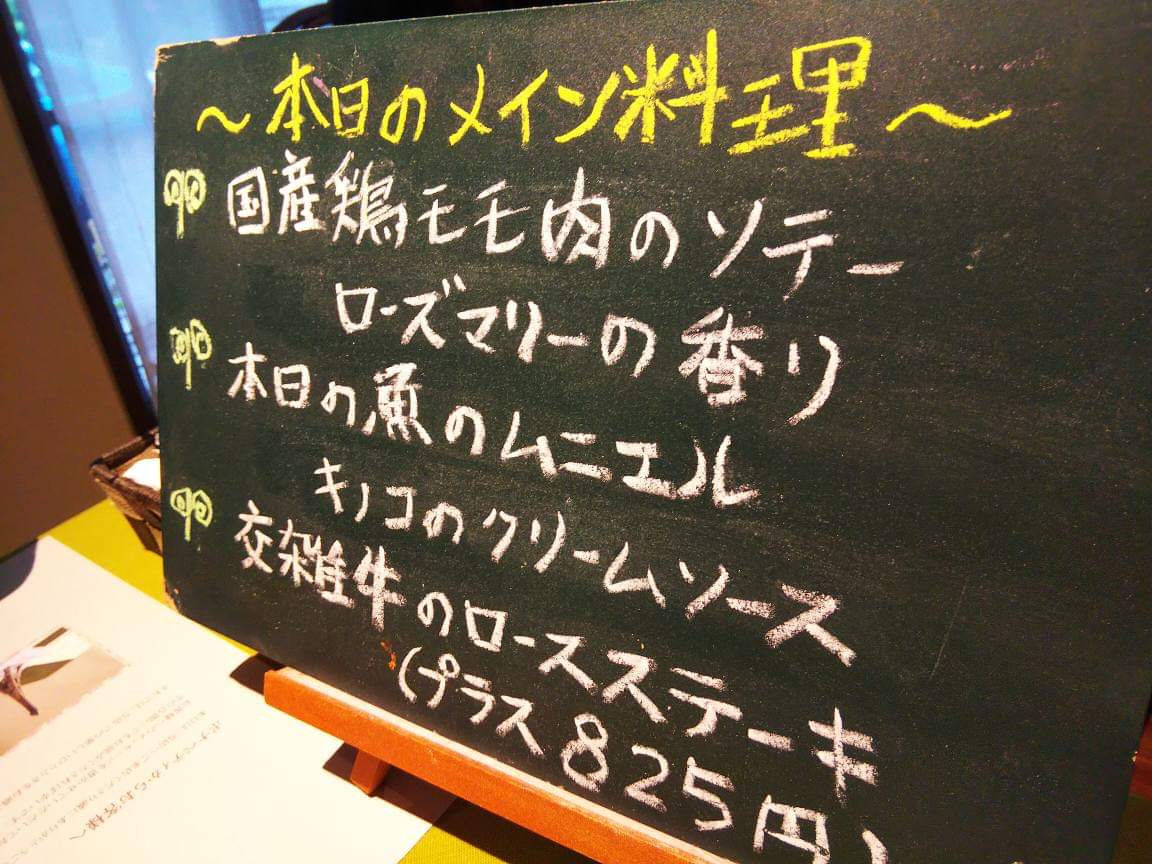 ～本日のメイン料理～
国産鶏モモ肉のソテー
ローズマリーの香り
本日の魚のムニエル
キノコのクリームソース
交雑牛のロースステーキ
(プラス825円)